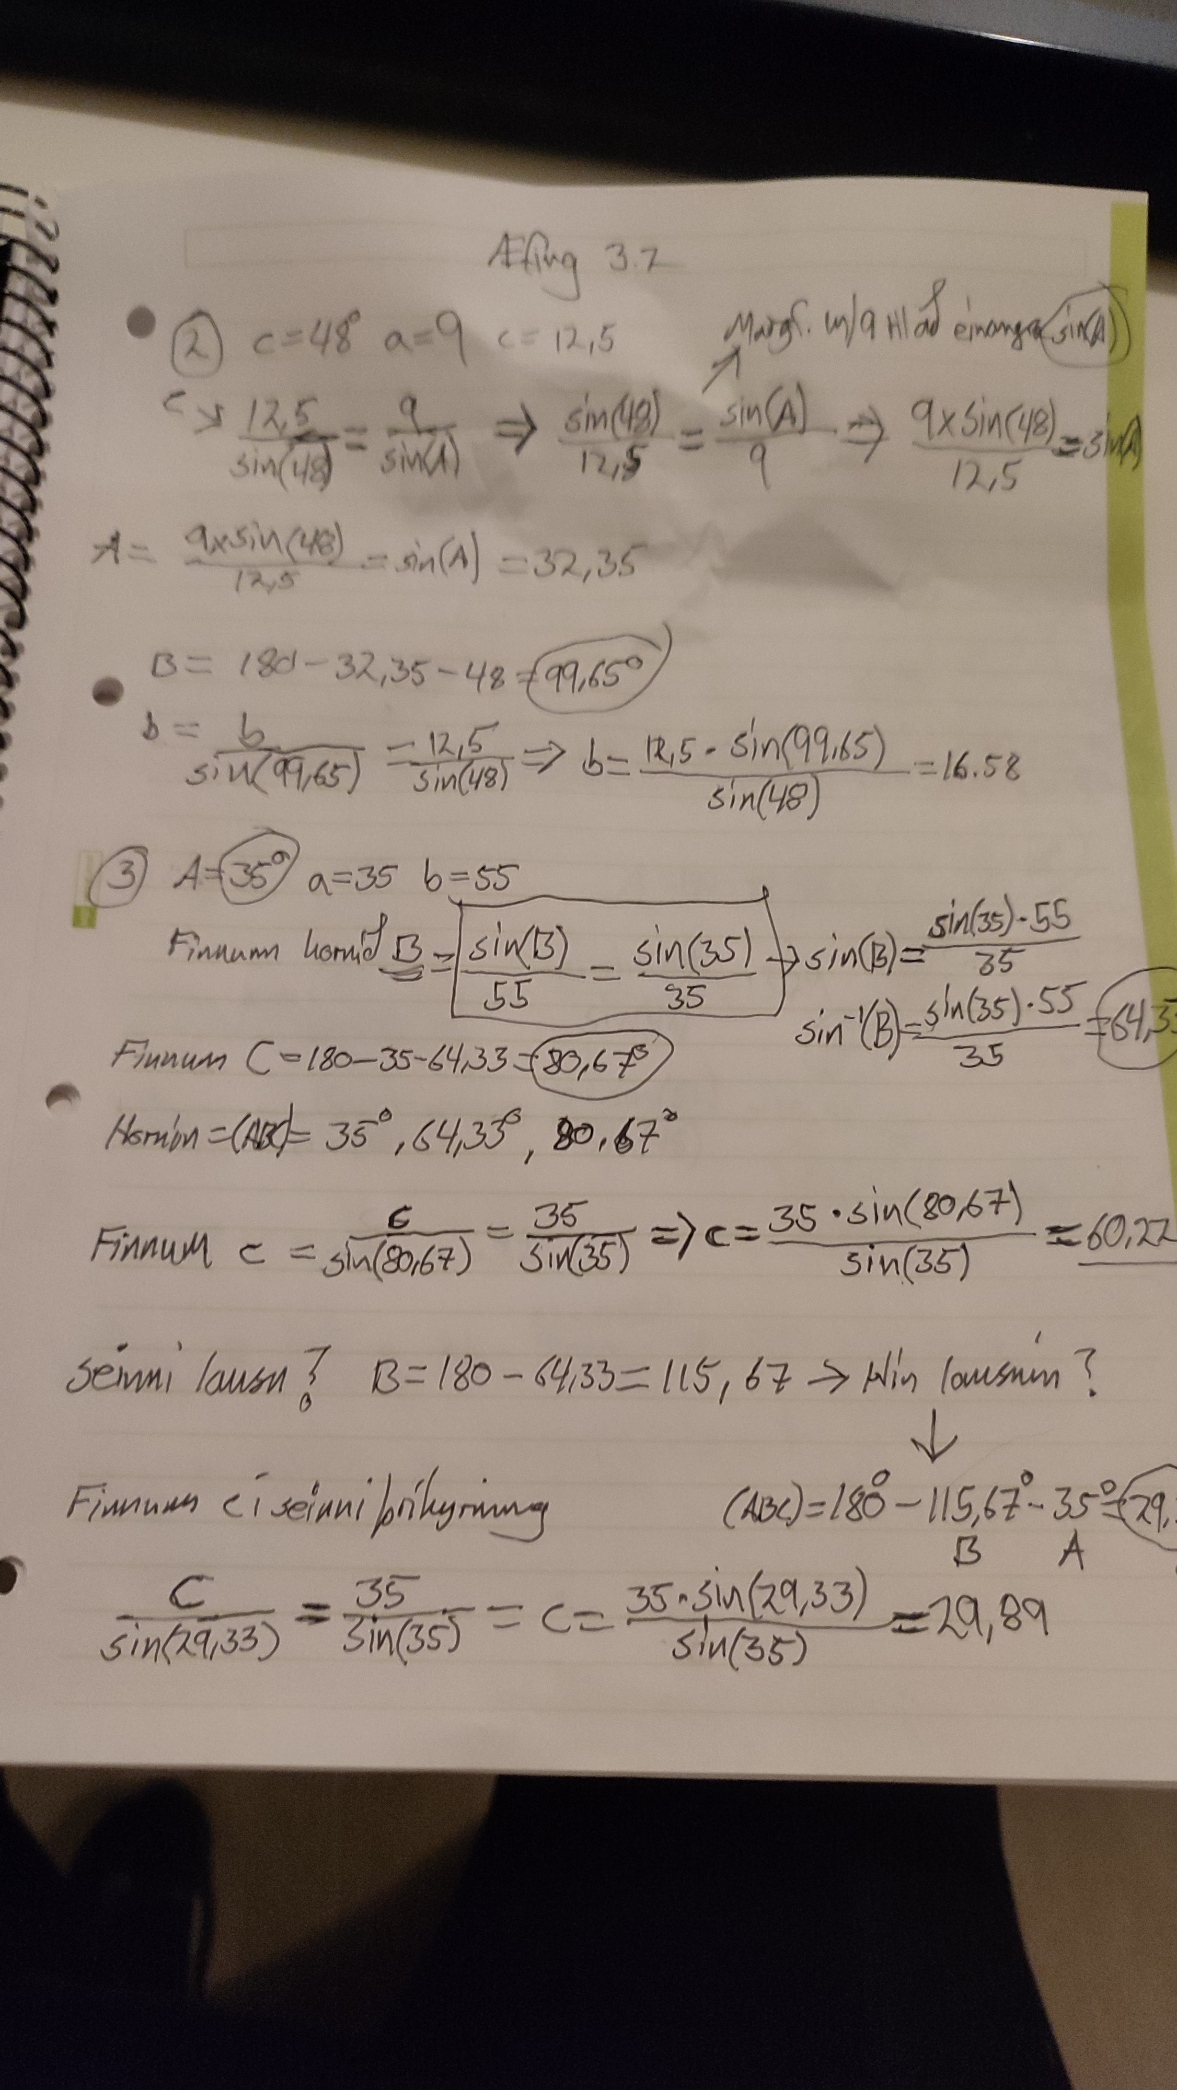 Æfing 3.7
Margf. m/9 til að einangra sin(A)
② C=48° a=9 c=12,5
12,5/sin(48) = 9/sin(A) ⇒ sin(48)/12,5 = sin(A)/9 ⇒ 9×sin(48)/12,5 = sin(A)
A= 9×sin(48)/12,5 = sin(A) = 32,35
B= 180-32,35-48=99,65°
b= b/sin(99,65) = 12,5/sin(48) ⇒ b= 12,5·sin(99,65)/sin(48) =16.58
③ A=35° a=35 b=55
Finnum hornið B = sin(B)/55 = sin(35)/35 → sin(B)= sin(35)·55/35
sin⁻¹(B)= sin(35)·55/35 =64,33
Finnum C=180-35-64,33=80,67°
Hornin=(ABC)= 35°, 64,33°, 80,67°
Finnum c = c/sin(80,67) = 35/sin(35) => c= 35·sin(80,67)/sin(35) = 60,22
Seinni lausn? B=180-64,33=115,67 → Hin lausnin?
↓
Finnum c í seinni þríhyrning (ABC)=180°-115,67°-35°=29,
B A
C/sin(29,33) = 35/sin(35) = C= 35·sin(29,33)/sin(35) =29,89